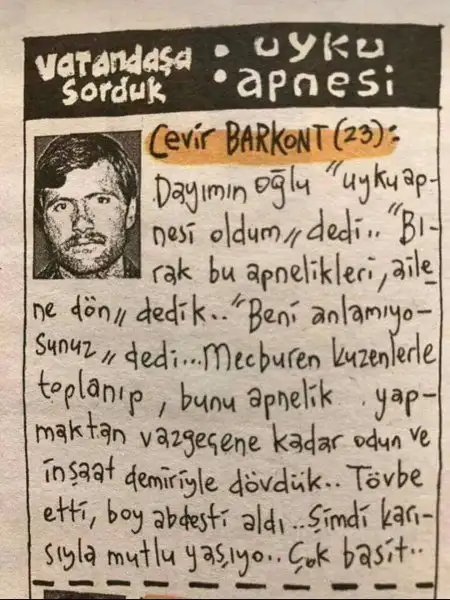 vatandaşa
sorduk
: uyku
apnesi
Cevir BARKONT (23):
Dayımın oğlu "uyku ap-
nesi oldum" dedi.. "Bı-
rak bu apnelikleri, aile_
ne dön" dedik.. "Beni anlamıyo-
sunuz" dedi... Mecburen kuzenlerle
toplanıp, bunu apnelik yap-
maktan vazgeçene kadar odun ve
inşaat demiriyle dövdük.. Tövbe
etti, boy abdesti aldı.. Şimdi karı-
sıyla mutlu yaşıyo.. Çok basit..